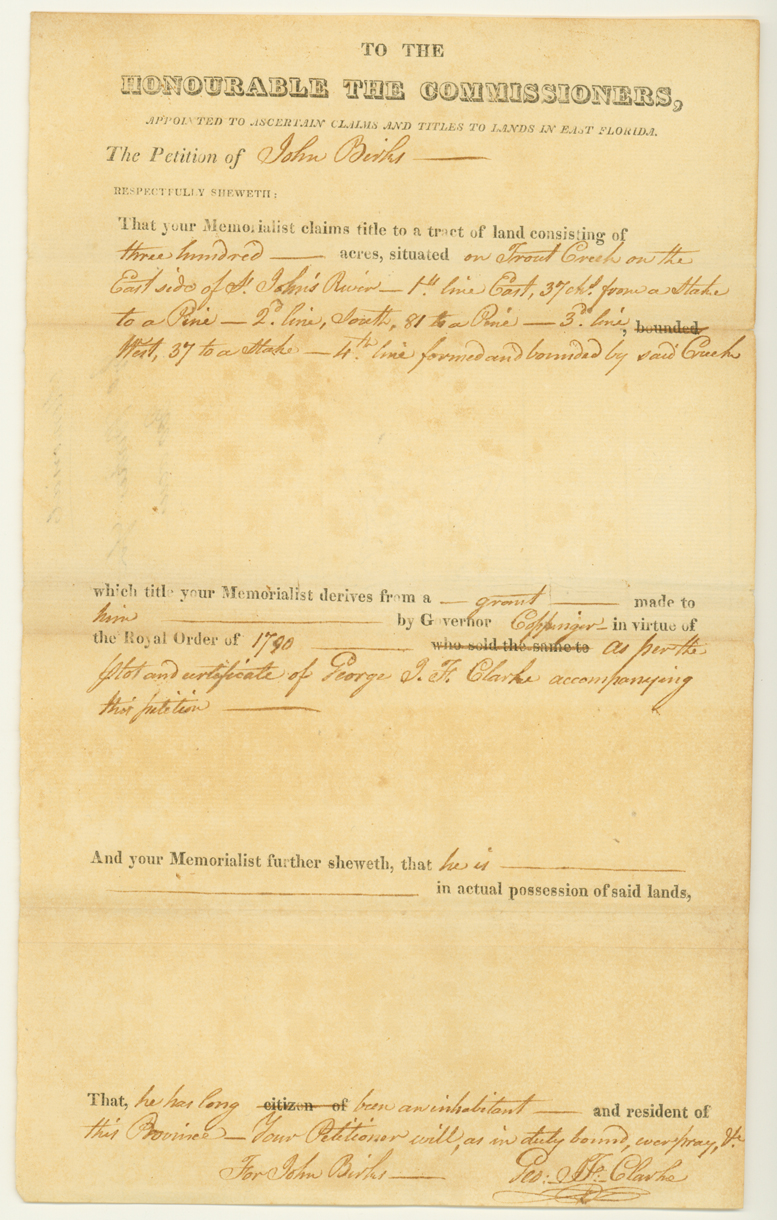 TO THE
HONOURABLE THE COMMISSIONERS,
APPOINTED TO ASCERTAIN CLAIMS AND TITLES TO LANDS IN EAST FLORIDA.
The Petition of John Birks —
RESPECTFULLY SHEWETH:
That your Memorialist claims title to a tract of land consisting of
three hundred — acres, situated on Trout Creek on the
East side of St. John's River — 1st. line East, 37 chs. from a Stake
to a Pine — 2d. line, South, 81 to a Pine — 3d. line, bounded
West, 37 to a Stake — 4th. line formed and bounded by said Creek
which title your Memorialist derives from a — grant — made to
him — by Governor Coppinger — in virtue of
the Royal Order of 1790 — who sold the same to as per the
plot and certificate of George J. F. Clarke accompanying
this petition —
And your Memorialist further sheweth, that he is —
— in actual possession of said lands,
That, he has long citizen of been an inhabitant — and resident of
this Province — Your Petitioner will, as in duty bound, ever pray, &c.
For John Birks — Geo: J. F. Clarke